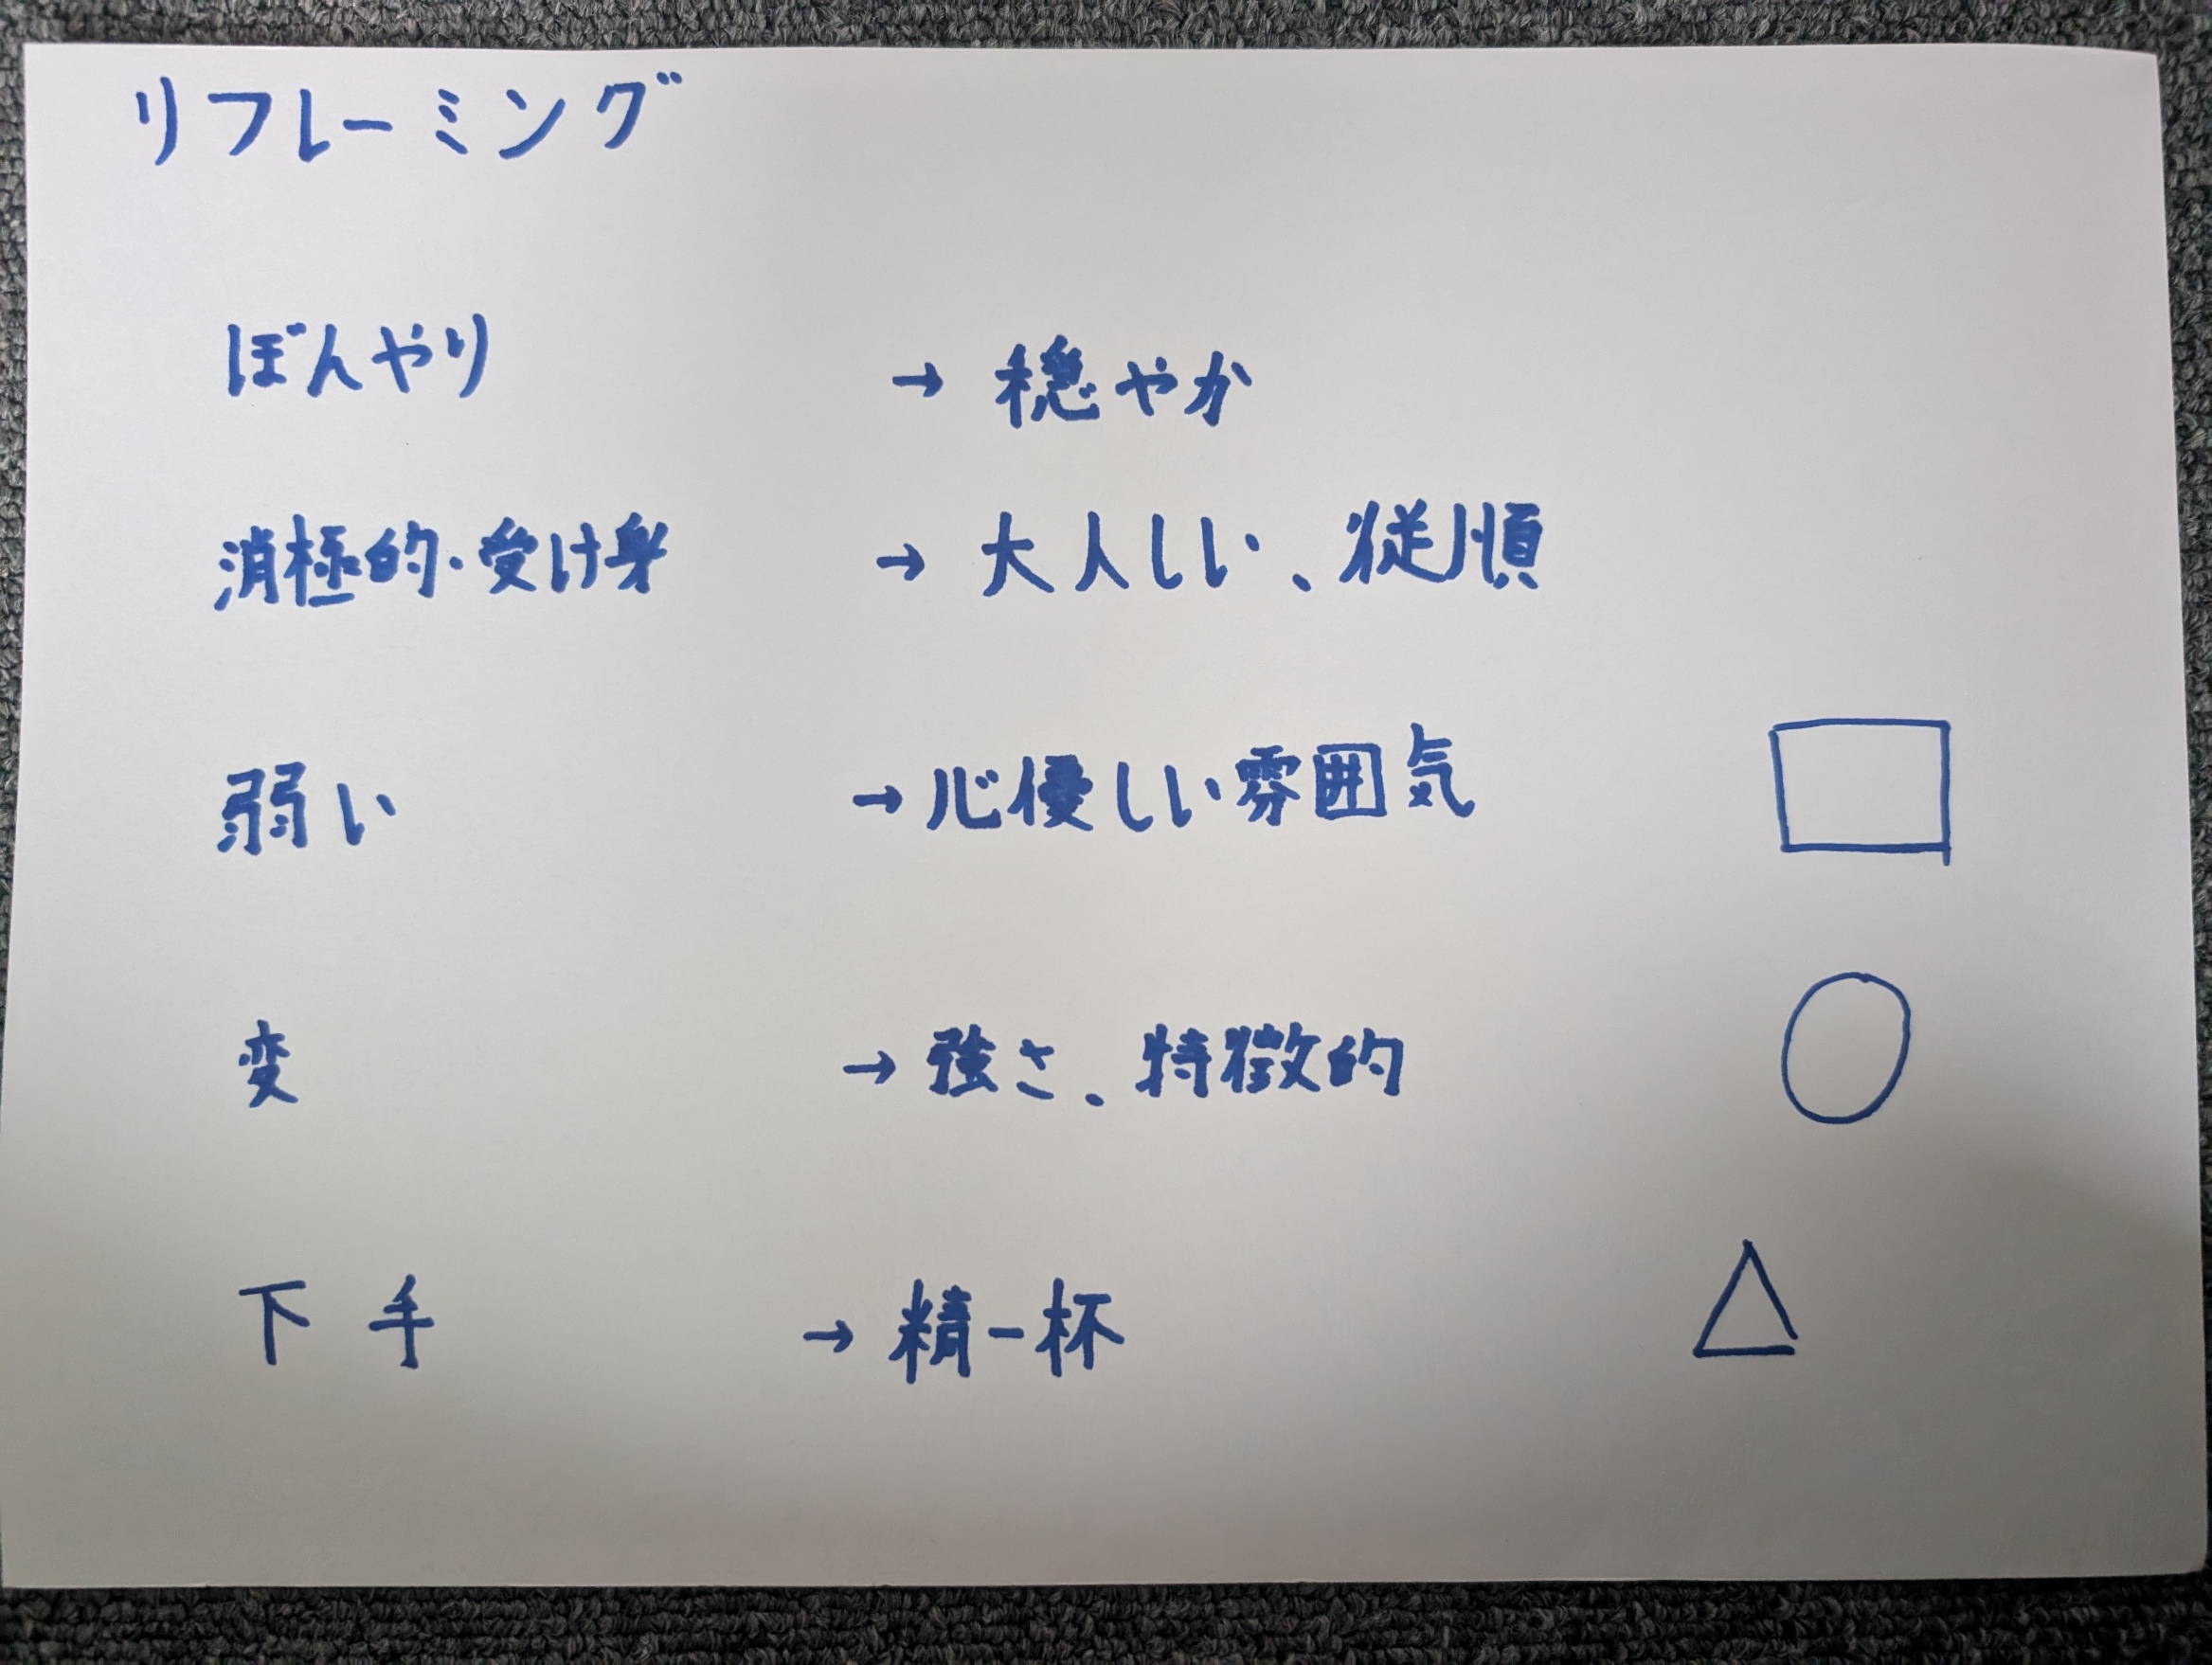 リフレーミング
ぼんやり → 穏やか
消極的・受け身 → 大人しい、従順
弱い → 心優しい雰囲気
変 → 強さ、特徴的
下手 → 精一杯